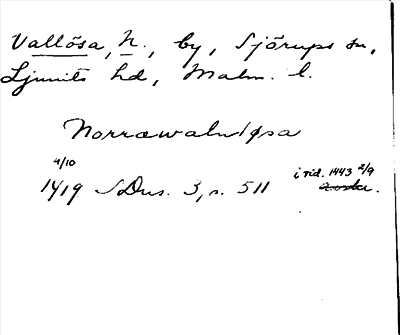 Vallösa, N., by, Sjörups sn,
Ljunits hd, Malm. l.
Norrœwalnløsa
4/10
1419 SDns. 3, s. 511 i vid. 1443 2/9